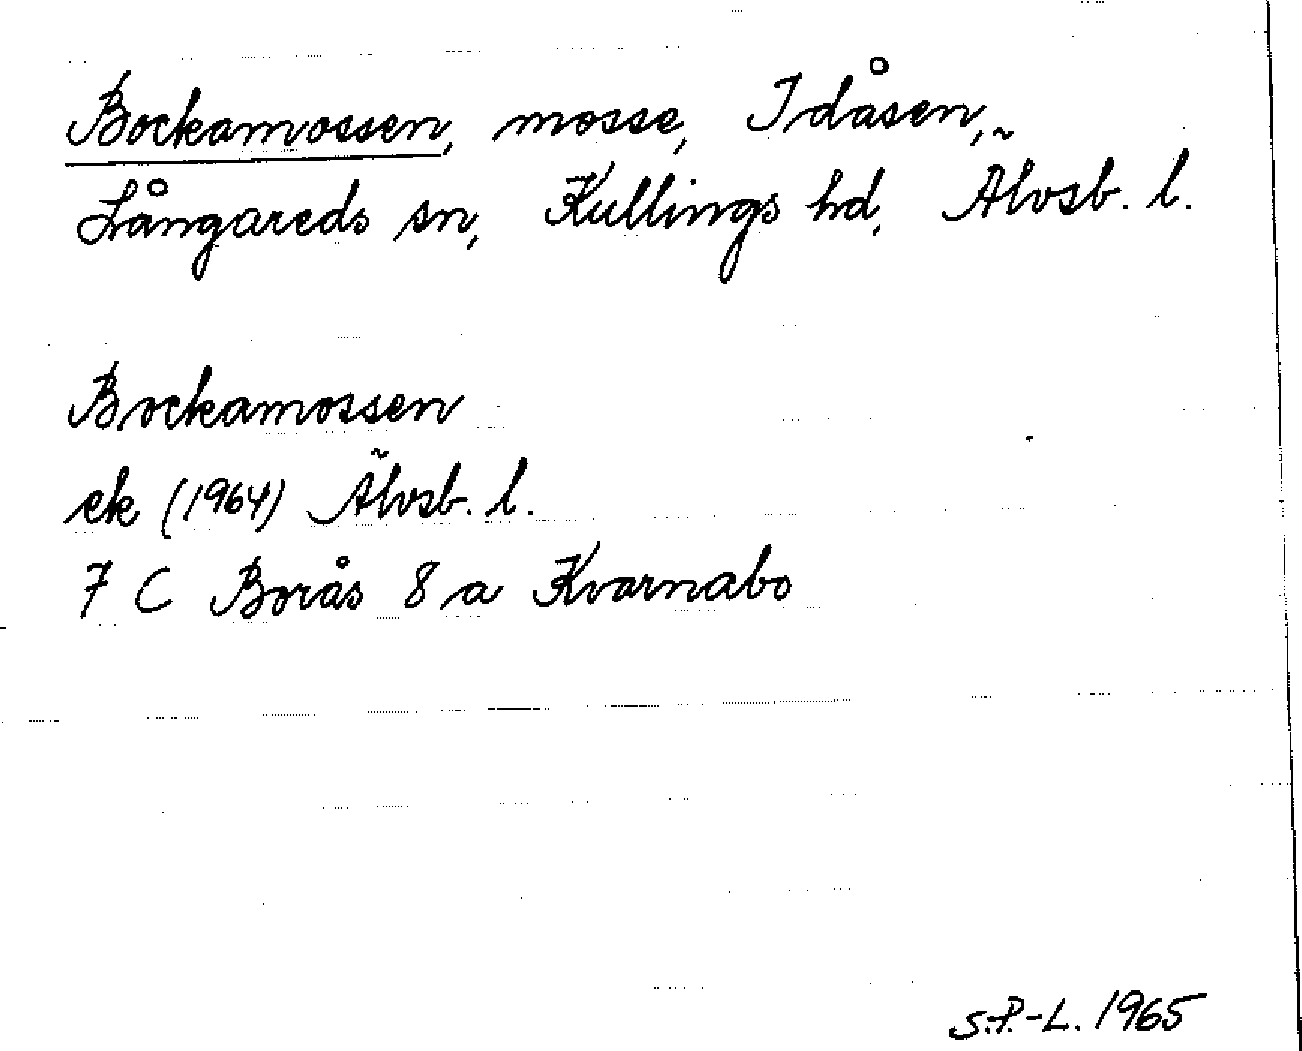 Bockamossen, mosse, Idåsen,
Långareds sn, Kullings hd, Älvsb. l.
Bockamossen
ek (1964) Älvsb. l.
7 C Borås 8 a Kvarnabo
S.P.-L. 1965